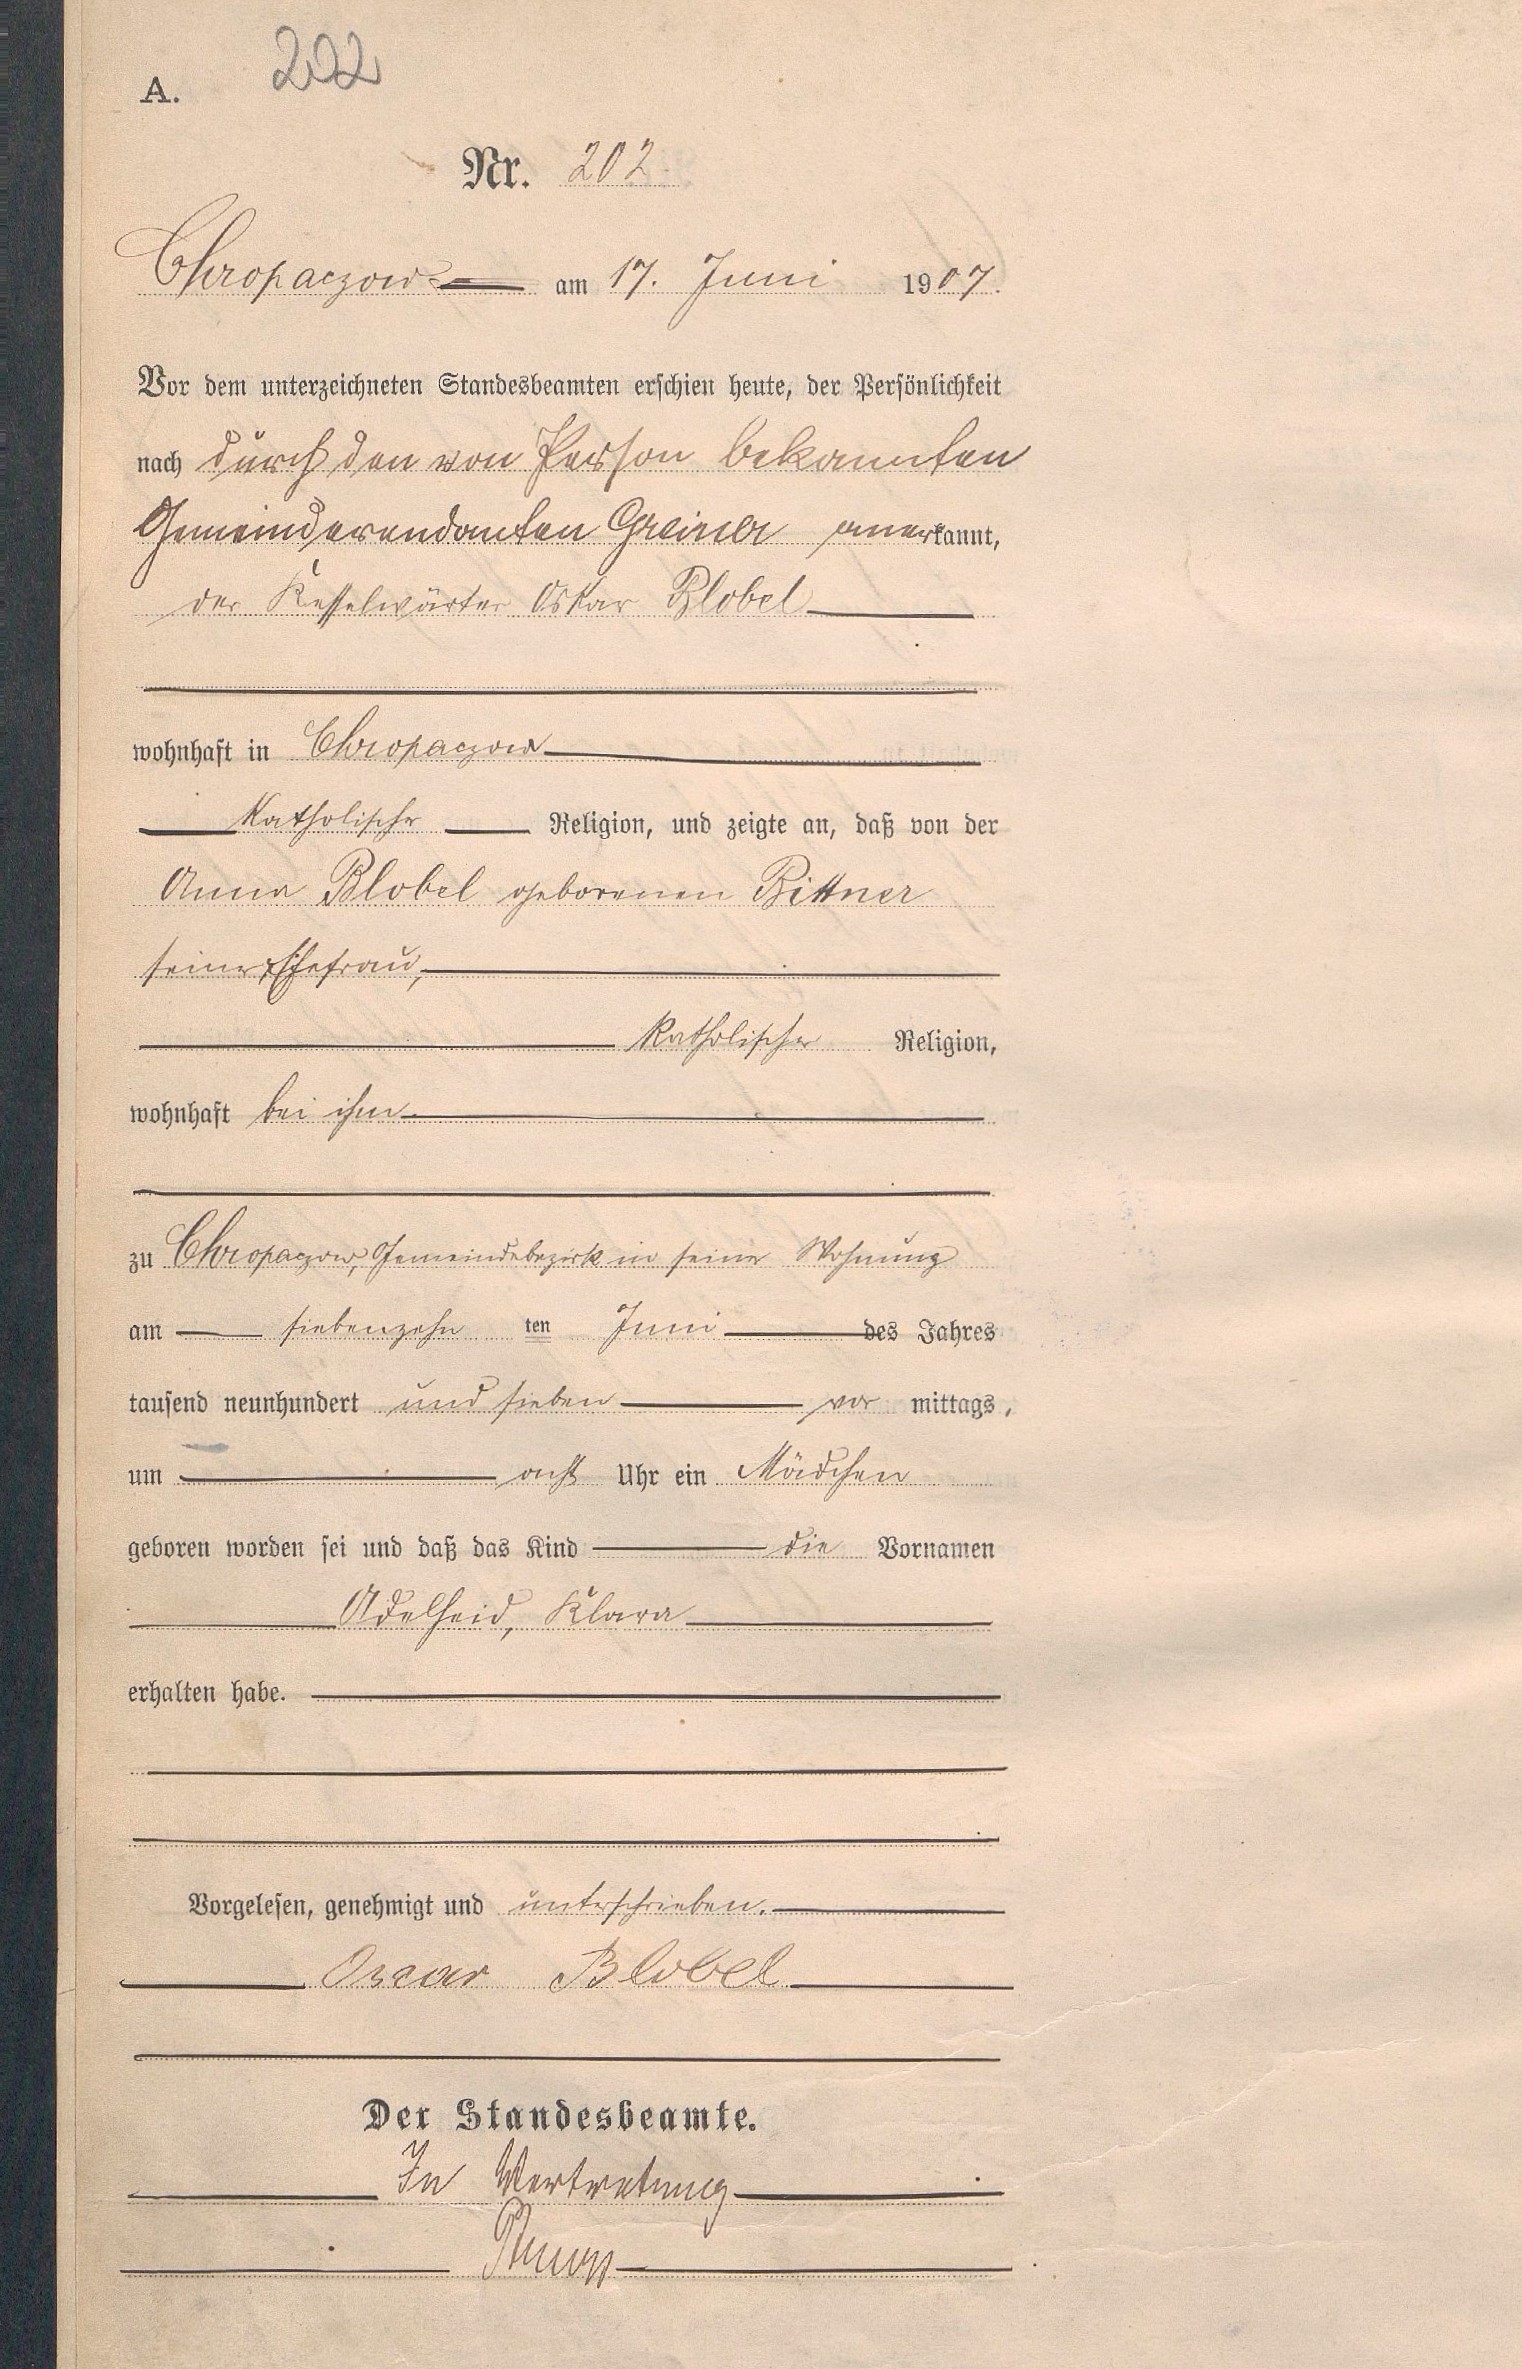 202
A.
Nr. 202.
Chropaczow am 17. Juni 1907.
Vor dem unterzeichneten Standesbeamten erschien heute, der Persönlichkeit
nach durch den von Person bekannten
Gemeinderendanten Greiner anerkannt,
der Kesselwärter Oskar Blobel
wohnhaft in Chropaczow
katholischer Religion, und zeigte an, daß von der
Anna Blobel geborenen Bittner
seiner Ehefrau,
katholischer Religion,
wohnhaft bei ihm
zu Chropaczow, Gemeindebezirk in seiner Wohnung
am siebenzehn ten Juni des Jahres
tausend neunhundert und sieben vor mittags,
um acht Uhr ein Mädchen
geboren worden sei und daß das Kind die Vornamen
Adelheid, Klara
erhalten habe.
Vorgelesen, genehmigt und unterschrieben.
Oscar Blobel
Der Standesbeamte.
In Vertretung